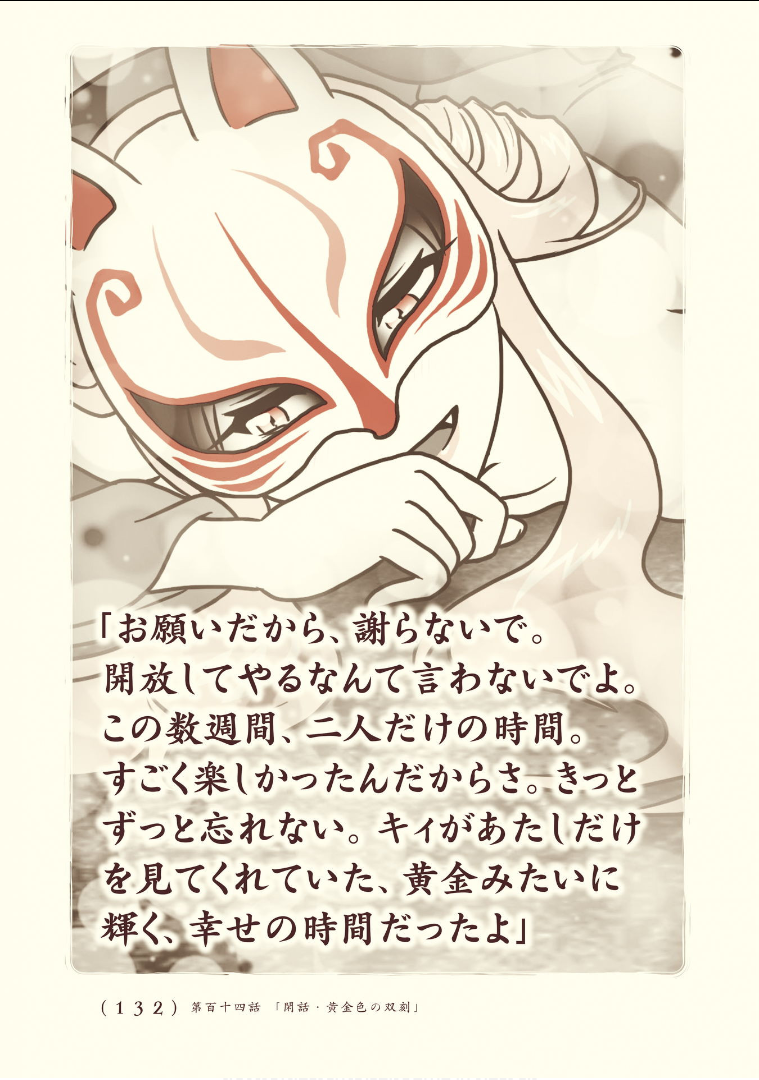 「お願いだから、謝らないで。
開放してやるなんて言わないでよ。
この数週間、二人だけの時間。
すごく楽しかったんだからさ。きっと
ずっと忘れない。キィがあたしだけ
を見てくれていた、黄金みたいに
輝く、幸せの時間だったよ」
(132) 第百十四話 「閑話・黄金色の双刻」